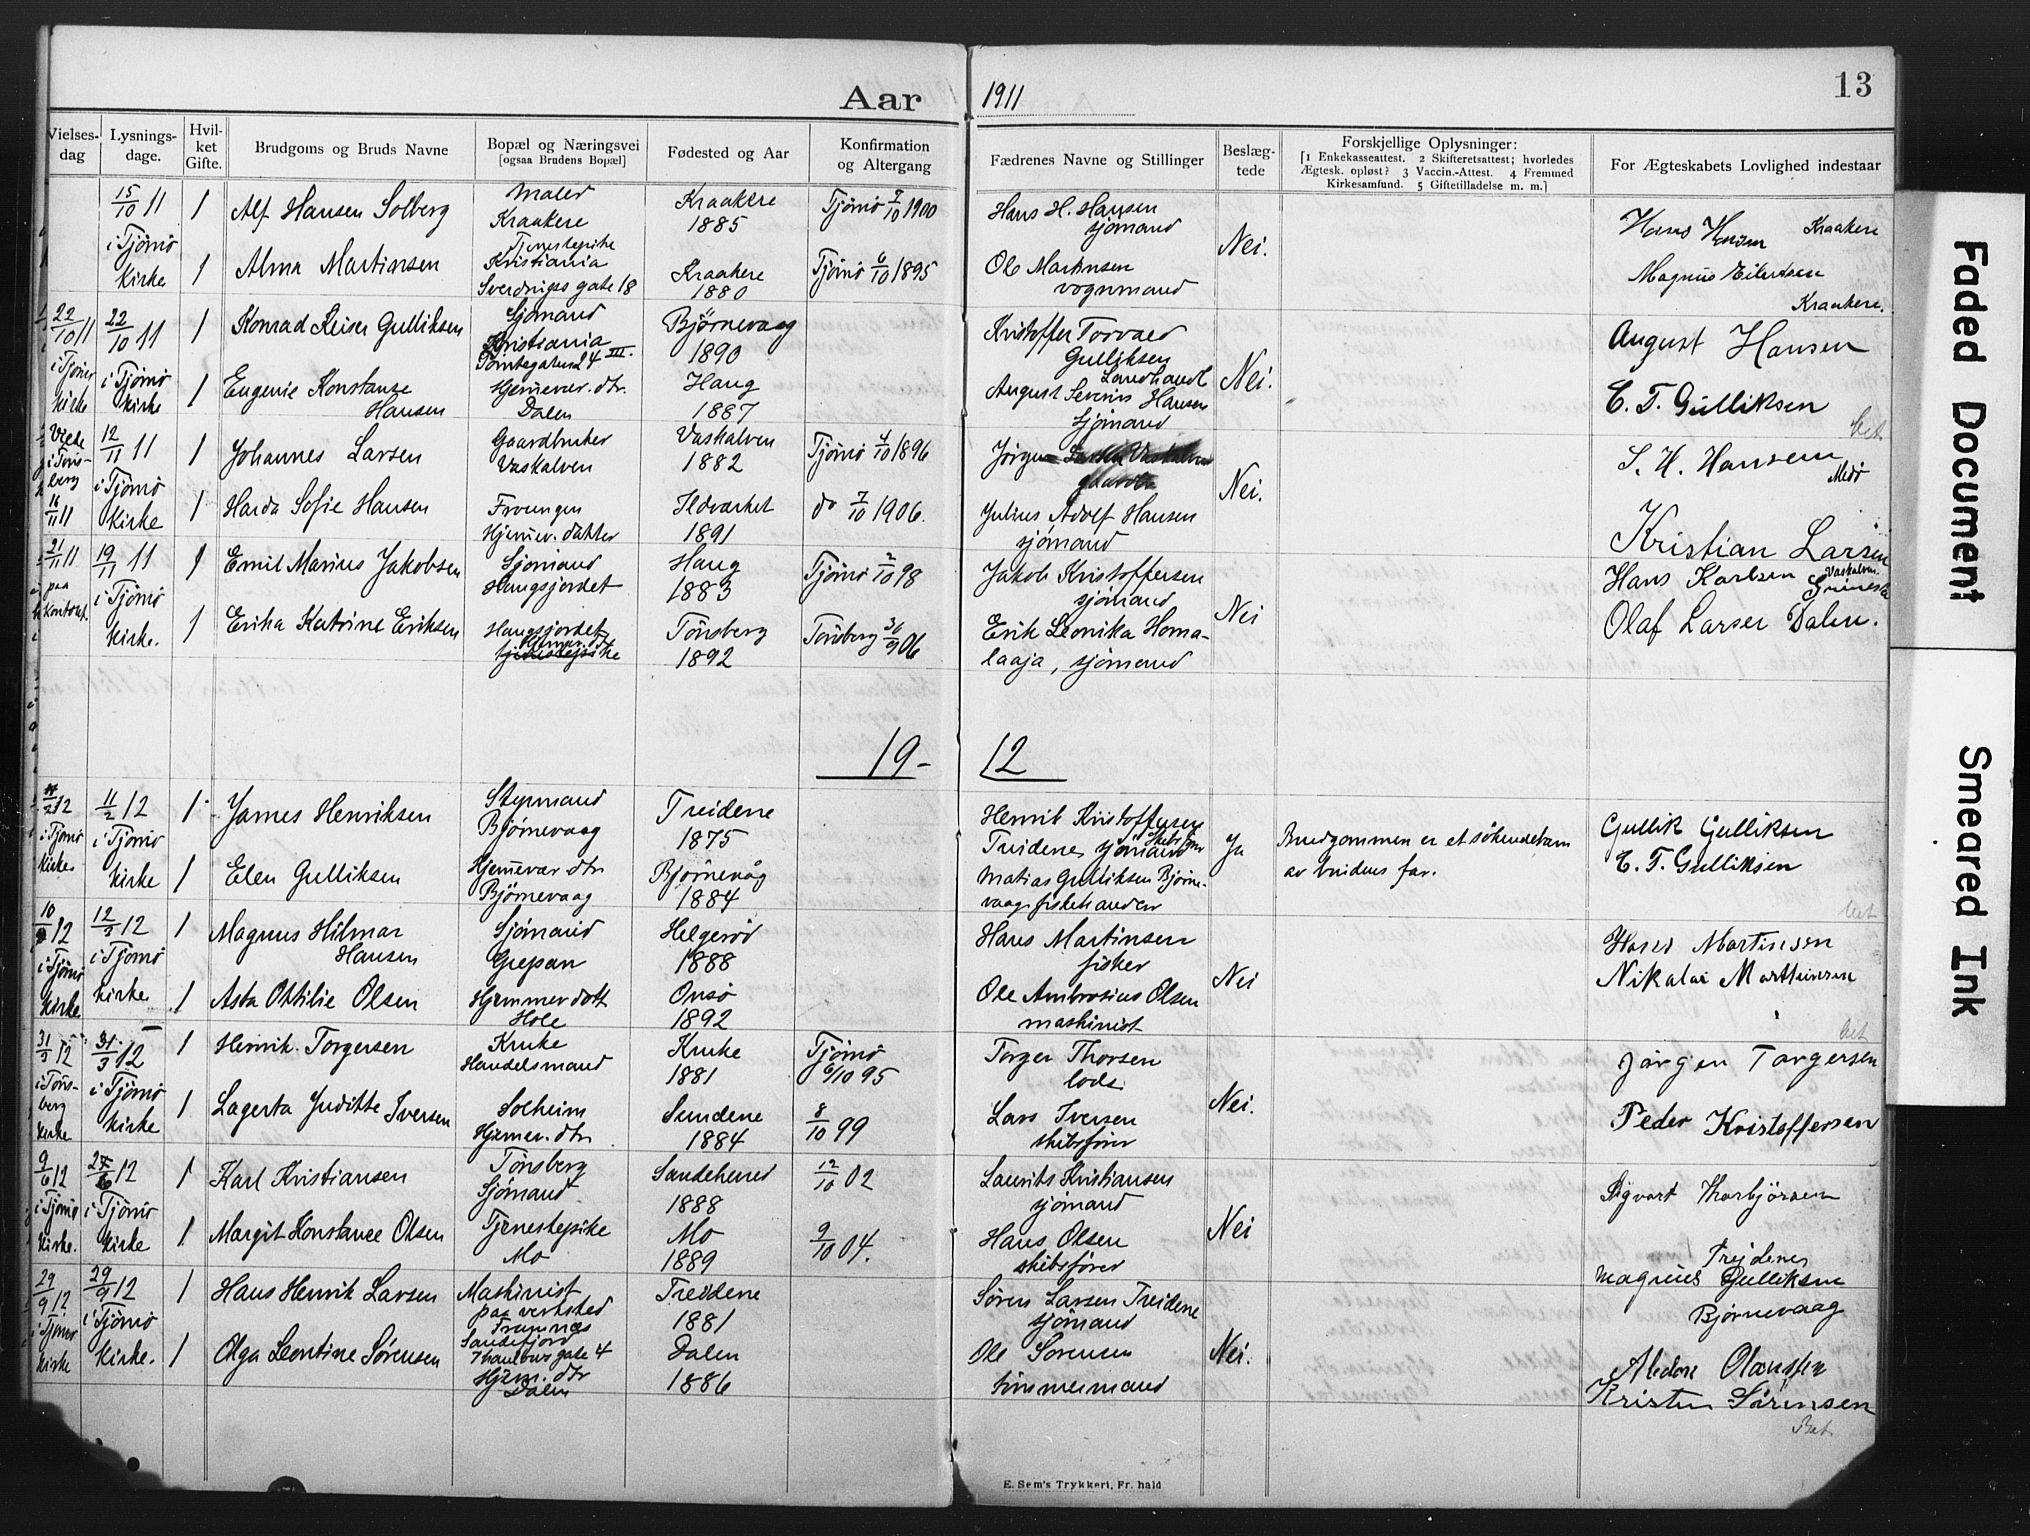 Aar 1911
13
Vielses-dag
Lysnings-dage.
Hvil-ket Gifte.
Brudgoms og Bruds Navne
Bopæl og Næringsvei [ogsaa Brudens Bopæl]
Fødested og Aar
Konfirmation og Altergang
Fædrenes Navne og Stillinger
Beslæg-tede
Forskjellige Oplysninger: [1 Enkekasseattest. 2 Skifteretsattest; hvorledes Ægtesk. opløst? 3 Vaccin.-Attest. 4 Fremmed Kirkesamfund. 5 Giftetilladelse m. m.]
For Ægteskabets Lovlighed indestaar
15/10 11 i Tjömö Kirke
1 Alf Hansen Solberg
Maler Kraakere
Kraakere 1885
Tjömö 7/10 1900
Hans H. Hansen sjömand
Nei.
Hans Hansen Kraakere
1 Alma Martinsen
Tjenestepike Kristiania Sverdrups gate 18
Kraakere 1880
Tjömö 6/10 1895
Ole Martinsen vognmand
Magnus Eilertsen Kraakere.
22/10 11 i Tjömö kirke
22/10 11 i Tjömö kirke
1 Konrad Keiser Gulliksen
Sjömand Kristiania Tomtegaten 24 III.
Björnevaag 1890
Kristoffer Torvald Gulliksen Landhandl
Nei.
August Hansen
1 Eugenie Konstanse Hansen
Hjemmev. dtr. Dalen
Haug 1887
August Severin Hansen Sjömand
E. T. Gulliksen
Viede i Töns-berg 16/11 11
12/11 11 i Tjömö Kirke
1 Johannes Larsen
Gaardbruker Vaskalven
Vaskalven 1882
Tjömö 4/10 1896
Jörgen
Nei.
S. H. Hansen Medö
1 Harda Sofie Hansen
Hjemmev. datter
Ildverket 1891
do 7/10 1906.
Julius Adolf Hansen sjömand
Kristian Larsen Vaskalven
21/11 11 paa kontoret.
19/11 11 i Tjömö kirke.
1 Emil Marius Jakobsen
Sjömand Haugsjordet
Haug 1883
Tjömö 2/10 98
Jakob Kristoffersen sjömand
Nei
Hans Karlsen
1 Erika Katrine Eriksen
Haugsjordet Hjemmev. dtr tjenestepike
Tönsberg 1892
Tönsberg 30/9 06
Erik Leonika Homa-laaja, sjömand
Olaf Larsen Dalen.
19- 12
11/2 12 i Tjömö kirke
11/2 12 i Tjömö kirke
1 James Henriksen
Styrmand Björnevaag
Treidene 1875
Henrik Kristoffersen Treidene sjömand Skibsförer
Ja
Brudgommen er et sökendebarn av brudens far.
Gullik Gulliksen
1 Elen Gulliksen
Hjemmevær. dtr Björnevaag
Björnevåg 1884
Matias Gulliksen Björne-vaag fiskehandler
E. T. Gulliksen
10/3 12 i Tjömö Kirke
12/3 12 i Tjomö kirke
1 Magnus Hilmar Hansen
Sjömand Grepan
Helgeröd 1888
Hans Martinsen fisker
Nei
Hans Martinsen
1 Asta Ottilie Olsen
Hjemmev dott Hole
Onsö 1892
Ole Ambrosius Olsen maskinist
Nikolai Marthinsen
31/3 12 i Töns-berg kirke
31/3 12 i Tjömö kirke
1 Henrik Torgersen
Kruke Handelsmand
Kruke 1881
Tjömö 6/10 95
Torger Thorsen lods
Nei.
Jörgen Torgersen
1 Lagerta Juditte Iversen
Solheim Hjemev. dtr.
Sundene 1884
8/10 99
Lars Iversen skibsförer
Peder Kristoffersen
9/6 12 i Tjömö kirke.
27/6 12 i Tjömö kirke
1 Karl Kristiansen
Tönsberg Sjömand
1888
12/10 02
Laurits Kristiansen sjömand
Nei
Sigvart Thorbjörsen
1 Margit Konstance Olsen
Tjenestepike Mo
Mo 1889
9/10 04.
Hans Olsen skibsförer
Trejdenes Magnus Gulliksen Björnevaag
29/9 12 i Tjömö kirke
29/9 12 i Tjömö kirke.
1 Hans Henrik Larsen
Maskinist paa verksted Framnæs Sandefjord gate 4
Treidene 1881
Sören Larsen Treidene sjömand
Nei.
1 Olga Leontine Sörensen
Hjem. dtr Dalen
Dalen 1886
Ole Sörensen tömmermand
Kristen Sörensen
Bet.
E. Sem's Trykkeri, Fr. hald
Faded Document
Smeared Ink